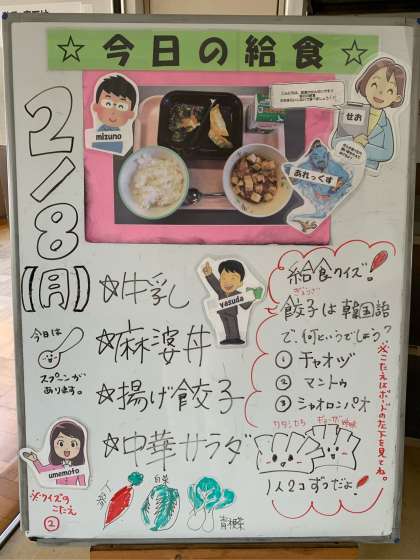 ☆今日の給食☆
mizuno
せお
あれっくす
2/8
(月)
☆牛乳
yasuda
☆麻婆丼
☆揚げ餃子
☆中華サラダ
今日は
スプーンが
あります。
給食クイズ!
ぎょうざ
餃子は韓国語
で、何というでしょう?
①チャオヅ
②マントゥ
③シャオロンパオ
※こたえはボードの左下を見てね。
ワタシたち
1人2コずつだよ!
umemoto
※クイズの
こたえ
②
白菜
青梗菜